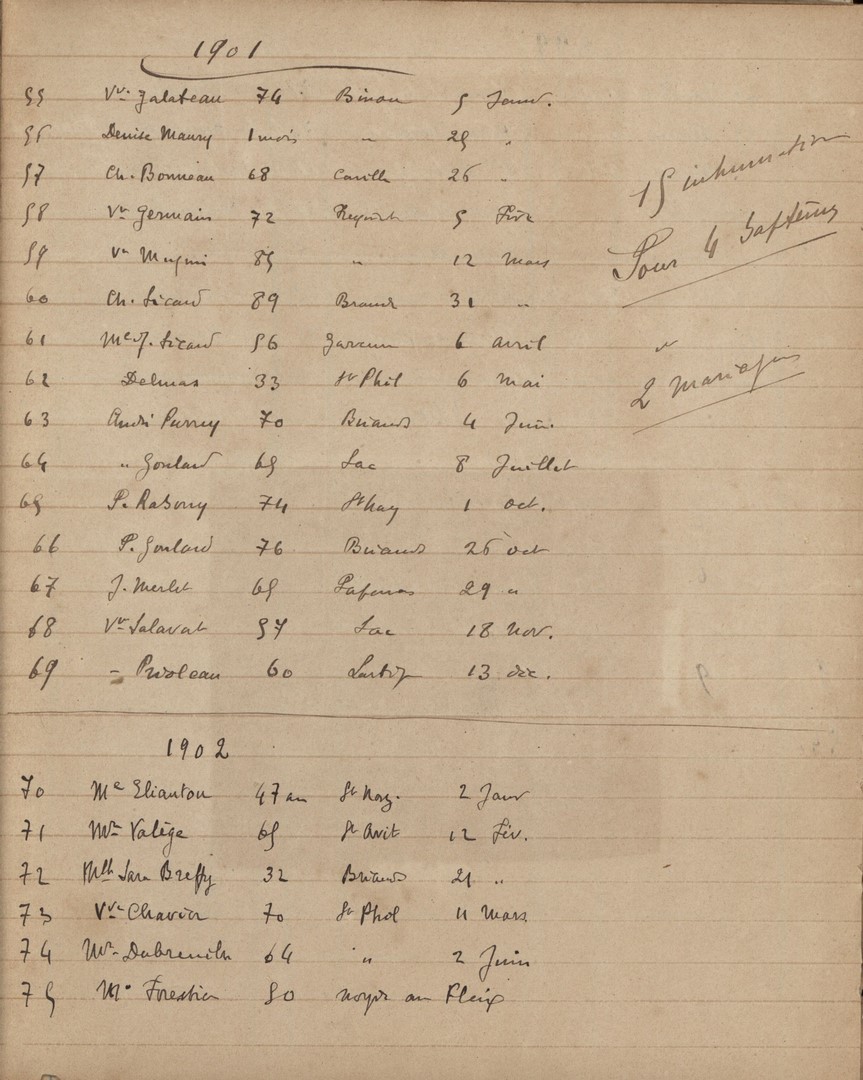 1901
55 Vve Jalateau 74 5 Janv.
56 Denise Maury 1 mois " 25 "
57 Ch. Bonneau 68 26 "
58 Vve Germain 72 5
59 Vve 85 " 12 Mars
60 Ch. Sicard 89 31 "
61 Me J. Sicard 56 6 Avril
62 Delmas 33 St Phil 6 Mai
63 André 70 Briands 4 Juin.
64 " Goulard 65 Lac 8 Juillet
65 P. Rabouy 74 1 oct.
66 P. Goulard 76 Briands 25 oct
67 J. Merlet 65 29 "
68 Vve Salavat 57 Lac 18 Nov.
69 - Prioleau 60 13 déc.
15 inhumations
Pour 4 baptêmes
"
2 mariages
1902
70 Me Elianton 47 an 2 Janv
71 Mr Valège 65 St Avit 12 Fév.
72 Mlle Sara 32 Briands 21 "
73 Vve Chavier 70 St Phil 11 Mars
74 Mr 64 " 2 Juin
75 Mr Forestier 50 noyé au Fleix